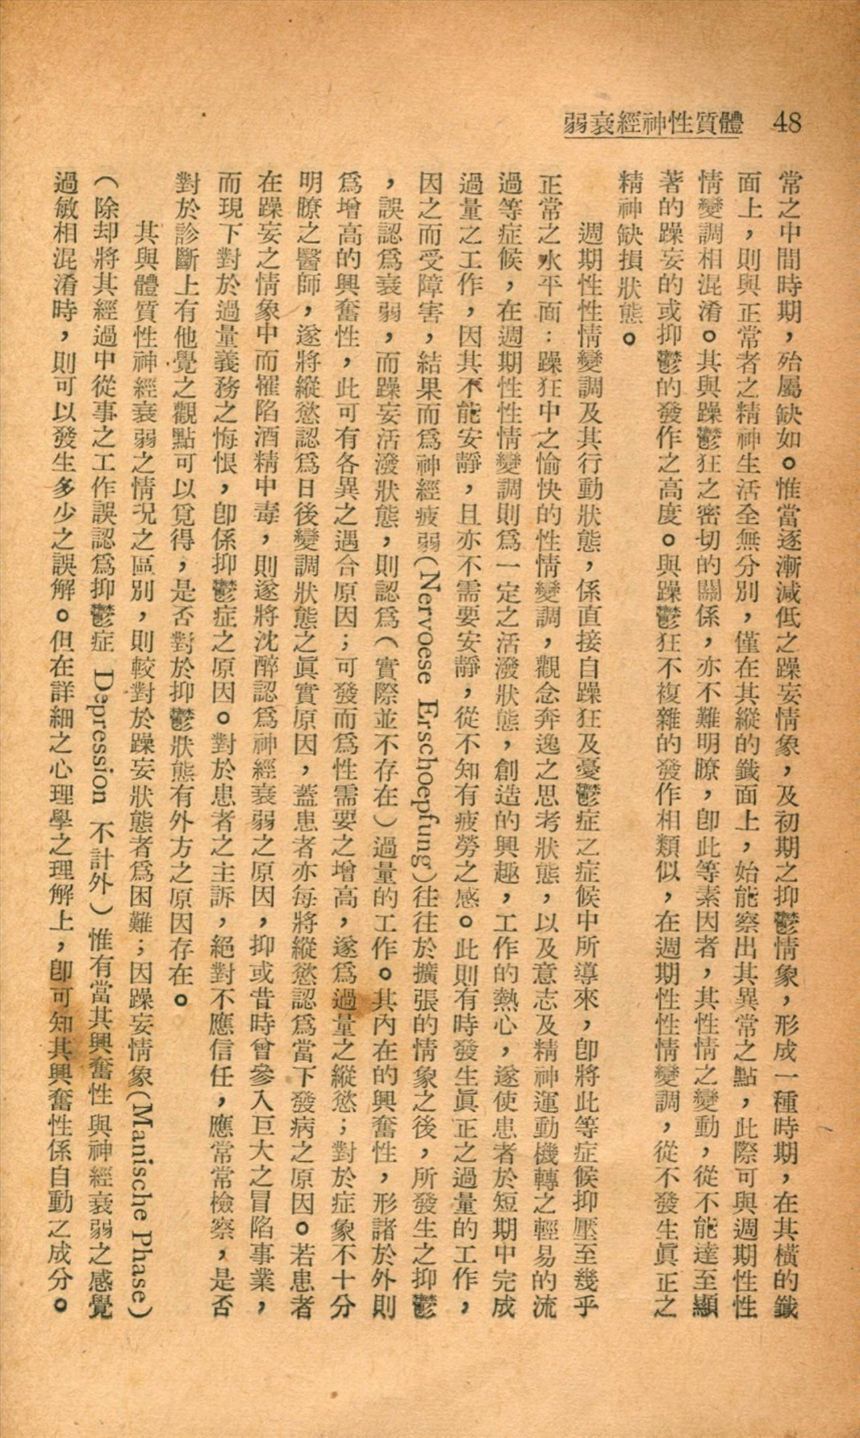 48 體質性神經衰弱
常之中間時期，殆屬缺如。惟當逐漸減低之躁妄情象，及初期之抑鬱情象，形成一種時期，在其橫的鐵
面上，則與正常者之精神生活全無分別，僅在其縱的鐵面上，始能察出其異常之點，此際可與週期性性
情變調相混淆。其與躁鬱狂之密切的關係，亦不難明瞭，卽此等素因者，其性情之變動，從不能達至顯
著的躁妄的或抑鬱的發作之高度。與躁鬱狂不複雜的發作相類似，在週期性性情變調，從不發生眞正之
精神缺損狀態。
週期性性情變調及其行動狀態，係直接自躁狂及憂鬱症之症候中所導來，卽將此等症候抑壓至幾乎
正常之水平面：躁狂中之愉快的性情變調，觀念奔逸之思考狀態，以及意志及精神運動機轉之輕易的流
過等症候，在週期性性情變調則爲一定之活潑狀態，創造的興趣，工作的熱心，遂使患者於短期中完成
過量之工作，因其不能安靜，且亦不需要安靜，從不知有疲勞之感。此則有時發生眞正之過量的工作，
因之而受障害，結果而爲神經疲弱(Nervoese Erschoepfung)往往於擴張的情象之後，所發生之抑鬱
，誤認爲衰弱，而躁妄活潑狀態，則認爲（實際並不存在）過量的工作。其內在的興奮性，形諸於外則
爲增高的興奮性，此可有各異之遇合原因；可發而爲性需要之增高，遂爲過量之縱慾；對於症象不十分
明瞭之醫師，遂將縱慾認爲日後變調狀態之眞實原因，蓋患者亦每將縱慾認爲當下發病之原因。若患者
在躁妄之情象中而罹陷酒精中毒，則遂將沈醉認爲神經衰弱之原因，抑或昔時曾參入巨大之冒險事業，
而現下對於過量義務之悔恨，卽係抑鬱症之原因。對於患者之主訴，絕對不應信任，應常常檢察，是否
對於診斷上有他覺之觀點可以覓得，是否對於抑鬱狀態有外方之原因存在。
其與體質性神經衰弱之情況之區別，則較對於躁妄狀態者爲困難；因躁妄情象(Manische Phase)
（除却將其經過中從事之工作誤認爲抑鬱症 Depression 不計外）惟有當其興奮性與神經衰弱之感覺
過敏相混淆時，則可以發生多少之誤解。但在詳細之心理學之理解上，卽可知其興奮性係自動之成分。